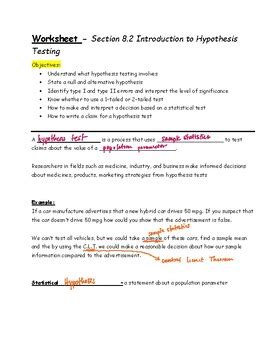 Worksheet – Section 8.2 Introduction to Hypothesis
Testing
Objectives:
• Understand what hypothesis testing involves
• State a null and alternative hypothesis
• Identify type I and type II errors and interpret the level of significance
• Know whether to use a 1-tailed or 2-tailed test
• How to make and interpret a decision based on a statistical test
• How to write a claim for a hypothesis test
A hypothesis test is a process that uses sample statistics to test
claims about the value of a population parameter.
Researchers in fields such as medicine, industry, and business make informed decisions about
medicines, products, marketing strategies from hypothesis tests
Example:
If a car manufacture advertises that a new hybrid car drives 50 mpg. If you suspect that
the car doesn't drive 50 mpg how could you show that the advertisement is false.
sample statistics
We can't test all vehicles, but we could take a sample of these cars, find a sample mean
and the by using the C.L.T. we could make a reasonable decision about how our sample
information compared to the advertisement.
central Limit Theorem
Statistical Hypothesis = a statement about a population parameter